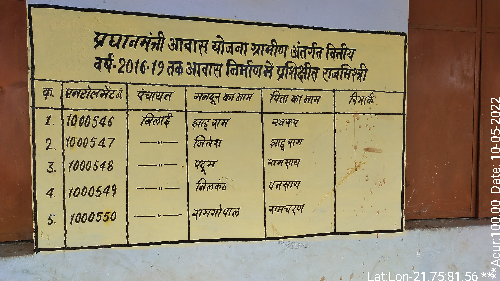 प्रधानमंत्री आवास योजना ग्रामीण अंतर्गत वित्तीय
वर्ष-2016-19 तक आवास निर्माण में प्रशिक्षीत राजमिस्त्री
क्र. एनरोलमेंट नं. पंचायत मजदूर का नाम पिता का नाम रिमार्क
1. 1000546 बिलाई झाडूराम
2. 1000547 —"— जितेश झाडूराम
3. 1000548 —"— पदूम रामसाय
4. 1000549 —"— निलकंठ धनसाय
5. 1000550 —"— रामगोपाल रामचरण
Lat Lon-21.75,81.56 *** Acur:100.00, Date: 10-05-2022